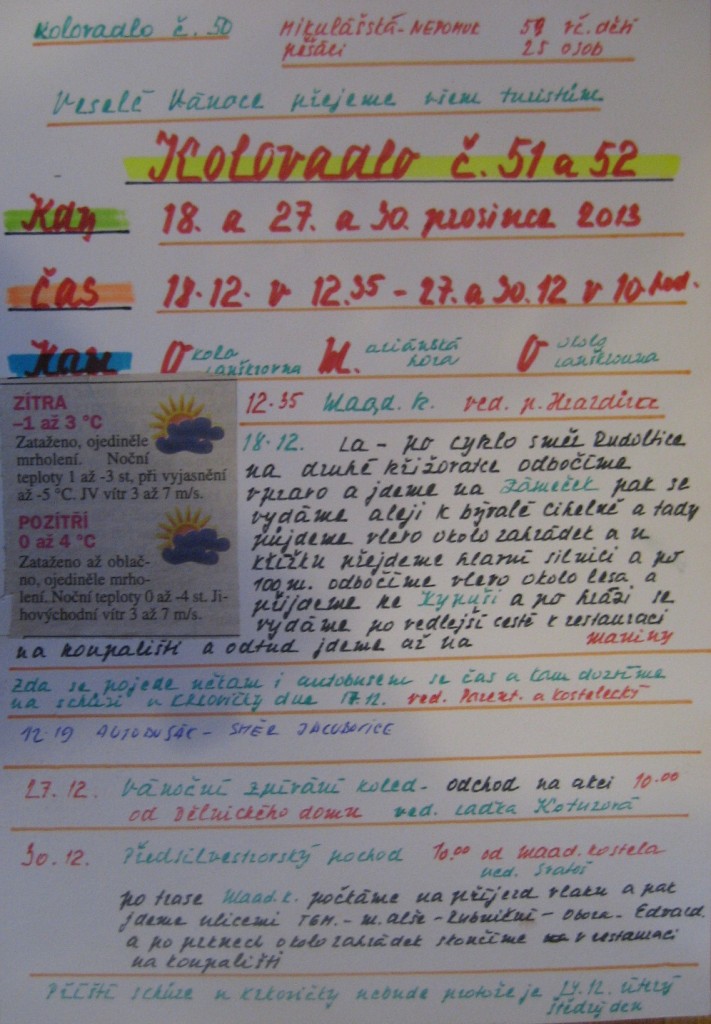 Kolovadlo č. 50
Mikulášská - NEPOMUK 59 vč. dětí
pěšáci 25 osob
Veselé Vánoce přejeme všem turistům
Kolovadlo č. 51 a 52
Kdy 18. a 27. a 30. prosince 2013
čas 18.12. v 12.35 - 27. a 30.12 v 10 hod.
Kam O kolo lanškrouna M. ariánská hora O okolo lanškrouna
ZÍTRA
–1 až 3 °C
Zataženo, ojediněle
mrholení. Noční
teploty 1 až -3 st, při vyjasnění
až -5 °C. JV vítr 3 až 7 m/s.
POZÍTŘÍ
0 až 4 °C
Zataženo až oblač-
no, ojediněle mrho-
lení. Noční teploty 0 až -4 st. Ji-
hovýchodní vítr 3 až 7 m/s.
12.35 Magd. k. ved. p.
18.12. La - po cyklo směr Rudoltice
na druhé křižovatce odbočíme
vpravo a jdeme na Zámeček pak se
vydáme alejí k bývalé cihelně a tady
půjdeme vlevo okolo zahrádek a u
křížku přejdeme hlavní silnici a po
100 m. odbočíme vlevo okolo lesa a
přijdeme ke a po hrázi se
vydáme po vedlejší cestě k restauraci
na koupališti a odtud jdeme až na Mariny
Zda se pojede někam i autobusem se čas a kam dozvíme
na schůzi u Krkovičky dne 17.12. ved. Parent. a Kostelecký
12.19 AUTOBUSÁK - SMĚR JAKUBOVICE
27.12. Vánoční zpívání koled - odchod na akci 10.00
od Dělnického domu ved. Laďka
30.12. Předsilvestrovský pochod 10.00 od Maad. kostela
ved. Svatoš
po trase Maad. k. počkáme na příjezd vlaku a pak
jdeme ulicemi TGM. - M. Alše - - Obor. - Edvard.
a po okolo zahrádek skončíme v restauraci
na koupališti
Příští schůze u Krkovičky nebude protože je 24.12. úterý
štědrý den